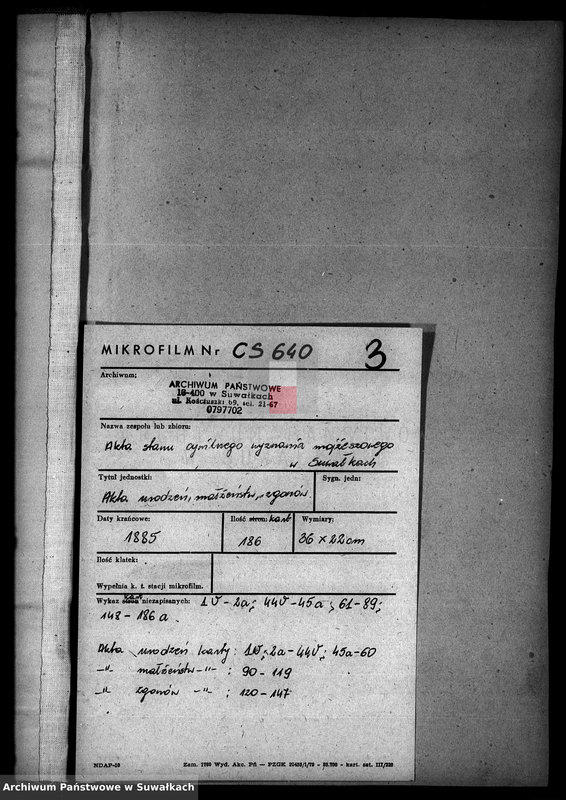 MIKROFILM Nr CS 640 3
Archiwum:
ARCHIWUM PAŃSTWOWE
16-400 w Suwałkach
ul. Kościuszki 69, tel. 21-67
0797702
Nazwa zespołu lub zbioru:
Akta stanu cywilnego wyznania mojżeszowego
w Suwałkach
Tytuł jednostki: Sygn. jedn:
Akta urodzeń, małżeństw, zgonów.
Daty krańcowe: Ilość stron: kart Wymiary:
1885 186 36 x 22 cm
Ilość klatek:
Wypełnia k. t. stacji mikrofilm.
Wykaz stron kart niezapisanych: 1v - 2a; 44v - 45a; 61-89;
148 - 186 a.
Akta urodzeń karty: 1v; 2a - 44v; 45a-60
-"- małżeństw -"- : 90 - 119
-"- zgonów -"- : 120 - 147
NDAP-10 Zam. Wyd. Akc. Pń — PZGK
Archiwum Państwowe w Suwałkach